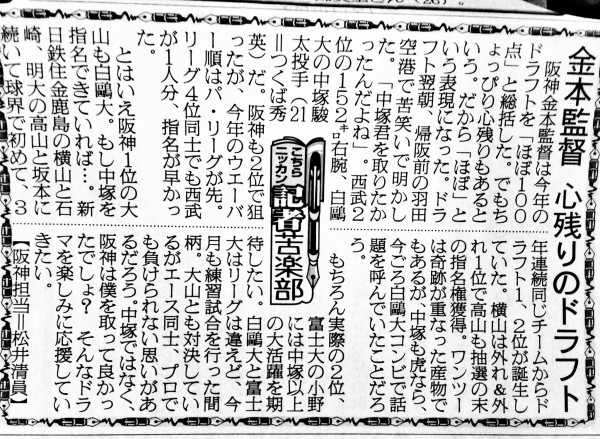 金本監督 心残りのドラフト
阪神金本監督は今年の
ドラフトを「ほぼ100
点」と総括した。でもち
ょっぴり心残りもあると
いう。だから「ほぼ」と
いう表現になった。ドラ
フト翌朝、帰阪前の羽田
空港で苦笑いで明かし
た。「中塚君を取りたか
ったんだよね」。西武2
位の152㌔右腕、白鷗
大の中塚駿
太投手(21
=つくば秀
英)だ。阪神も2位で狙
ったが、今年のウエーバ
ー順はパ・リーグが先。
リーグ4位同士でも西武
が1人分、指名が早かっ
た。
とはいえ阪神1位の大
山も白鷗大。もし中塚を
指名できていれば…。新
日鉄住金鹿島の横山と石
崎、明大の高山と坂本に
続いて球界で初めて、3
年連続同じチームからド
ラフト1、2位が誕生し
ていた。横山は外れ&外
れ1位で高山も抽選の末
の指名権獲得。ワンツー
は奇跡が重なった産物で
もあるが、中塚も虎なら、
今ごろ白鷗大コンビで話
題を呼んでいたことだろ
う。
もちろん実際の2位、
富士大の小野
には中塚以上
の大活躍を期
待したい。白鷗大と富士
大はリーグは違えど、今
月も練習試合を行った間
柄。大山とも対決してい
るがエース同士、プロで
も負けられない思いがあ
るだろう。中塚ではなく、
阪神は僕を取って良かっ
たでしょ? そんなドラ
マを楽しみに応援してい
きたい。
【阪神担当=松井清員】
こちら
ニッカン
記者苦楽部